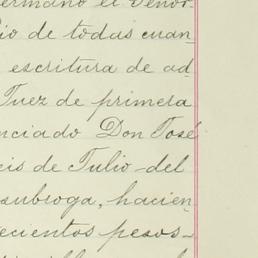 ermano el Señor
io de todas cuan-
escritura de ad
Juez de primera
enciado Don José
eis de Julio del
subroga, hacien
ecientos pesos-